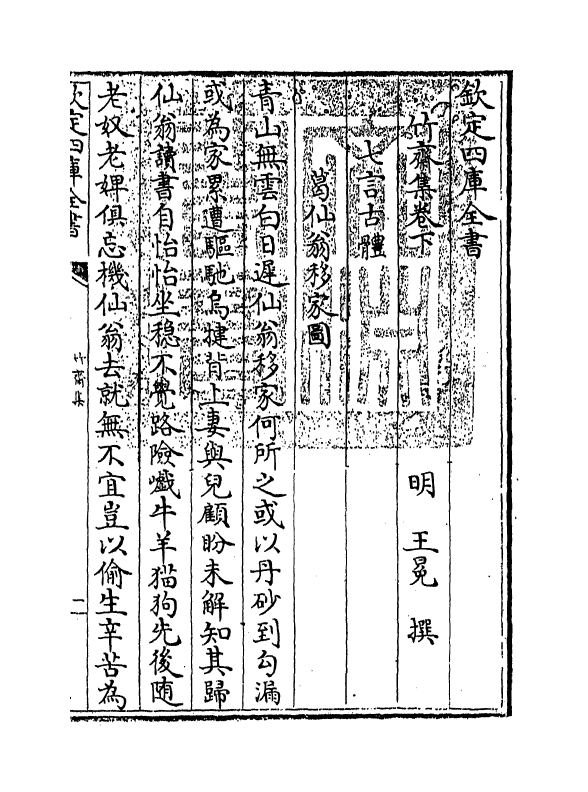 欽定四庫全書
竹齋集卷下
明 王冕 撰
七言古體
葛仙翁移家圖
青山無雲白日遲仙翁移家何所之或以丹砂到勾漏
或為家累遭驅馳烏犍背上妻與兒顧盼未解知其歸
仙翁讀書自怡怡坐穏不覺路險巇牛羊猫狗先後随
老奴老婢俱忘機仙翁去就無不宜豈以偷生辛苦為
欽定四庫全書
竹齋集